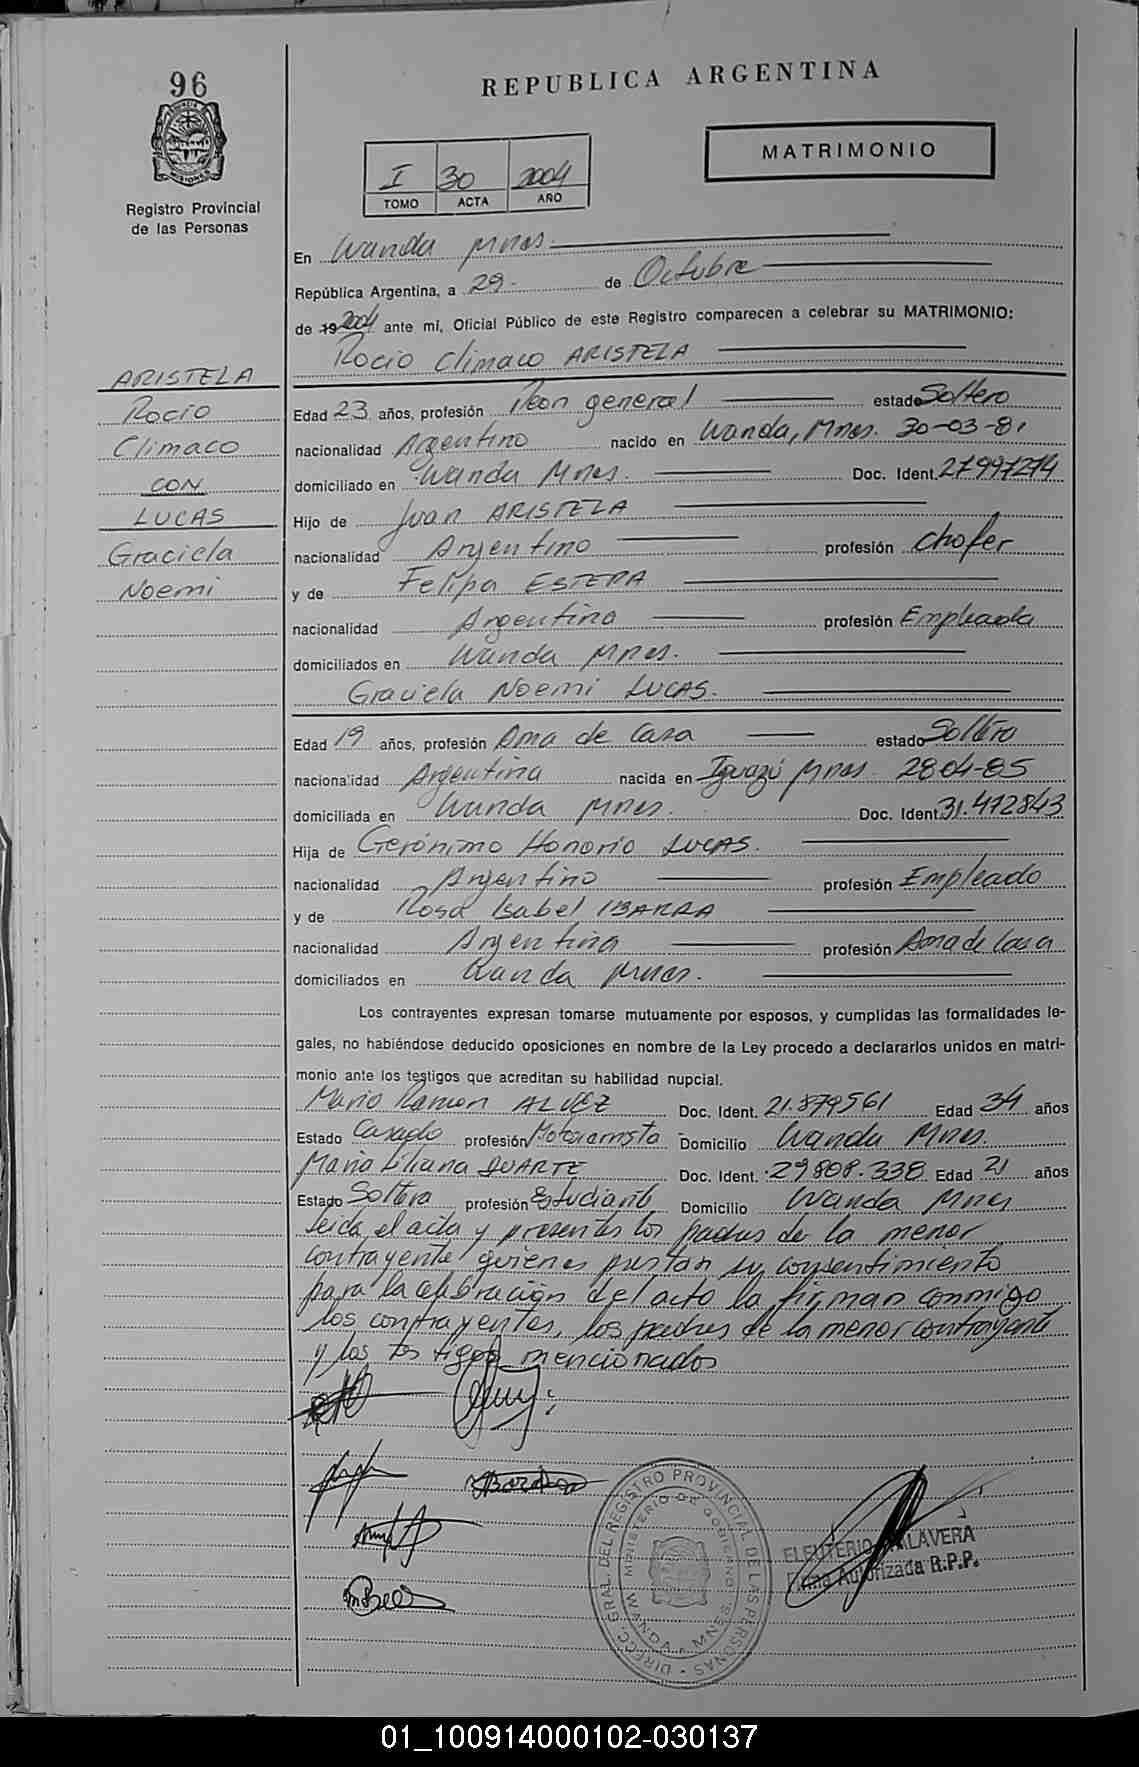 96
REPUBLICA ARGENTINA
MATRIMONIO
I 30 2004
TOMO ACTA AÑO
MISIONES
Registro Provincial
de las Personas
En Wanda Mnes.
República Argentina, a 29- de Octubre
de 19 2004 ante mí, Oficial Público de este Registro comparecen a celebrar su MATRIMONIO:
Rocio Climaco ARISTEZA
ARISTEZA
Rocio
Climaco
CON
LUCAS
Graciela
Noemi
Edad 23 años, profesión Peon general estado Soltero
nacionalidad Argentino nacido en Wanda, Mnes. 30-03-81
domiciliado en Wanda Mnes. Doc. Ident. 27997274
Hijo de Juan ARISTEZA
nacionalidad Argentino profesión Chofer
y de Felipa
nacionalidad Argentina profesión Empleada
domiciliados en Wanda Mnes.
Graciela Noemi LUCAS.
Edad 19 años, profesión Ama de Casa estado Soltera
nacionalidad Argentina nacida en Iguazú Mnes. 28-04-85
domiciliada en Wanda Mnes. Doc. Ident. 31.412843
Hija de Gerónimo Honorio LUCAS.
nacionalidad Argentino profesión Empleado
y de Rosa Isabel IBARRA
nacionalidad Argentina profesión Ama de Casa
domiciliados en Wanda Mnes.
Los contrayentes expresan tomarse mutuamente por esposos, y cumplidas las formalidades le-
gales, no habiéndose deducido oposiciones en nombre de la Ley procedo a declararlos unidos en matri-
monio ante los testigos que acreditan su habilidad nupcial.
Mario Ramon ALVEZ Doc. Ident. 21.879561 Edad 34 años
Estado Casado profesión Domicilio Wanda Mnes.
Maria Liliana DUARTE Doc. Ident. 29808.338 Edad 21 años
Estado Soltera profesión Estudiante Domicilio Wanda Mnes
Leida el acta y presentes los padres de la menor
contrayente quienes prestan su consentimiento
para la celebración del acto la firman conmigo
los contrayentes, los padres de la menor contrayente
y los testigos mencionados
DIRECC. GRAL. DEL REGISTRO PROVINCIAL DE LAS PERSONAS
MINISTERIO DE GOBIERNO
WANDA - MNES
ELEUTERIO TALAVERA
Firma Autorizada R.P.P.
01_100914000102-030137